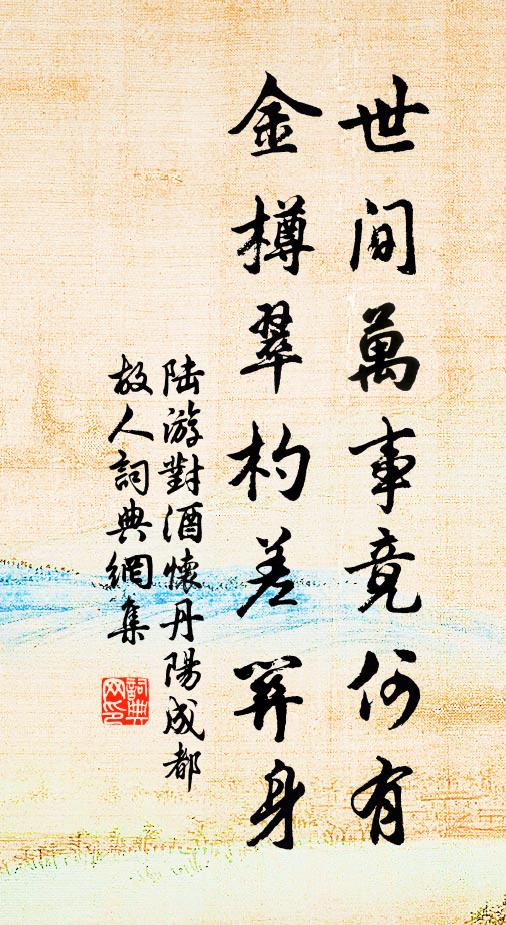 世間萬事竟何有
金樽翠杓差關身
陸游對酒懷丹陽成都
故人詞典網集
詞典
网印